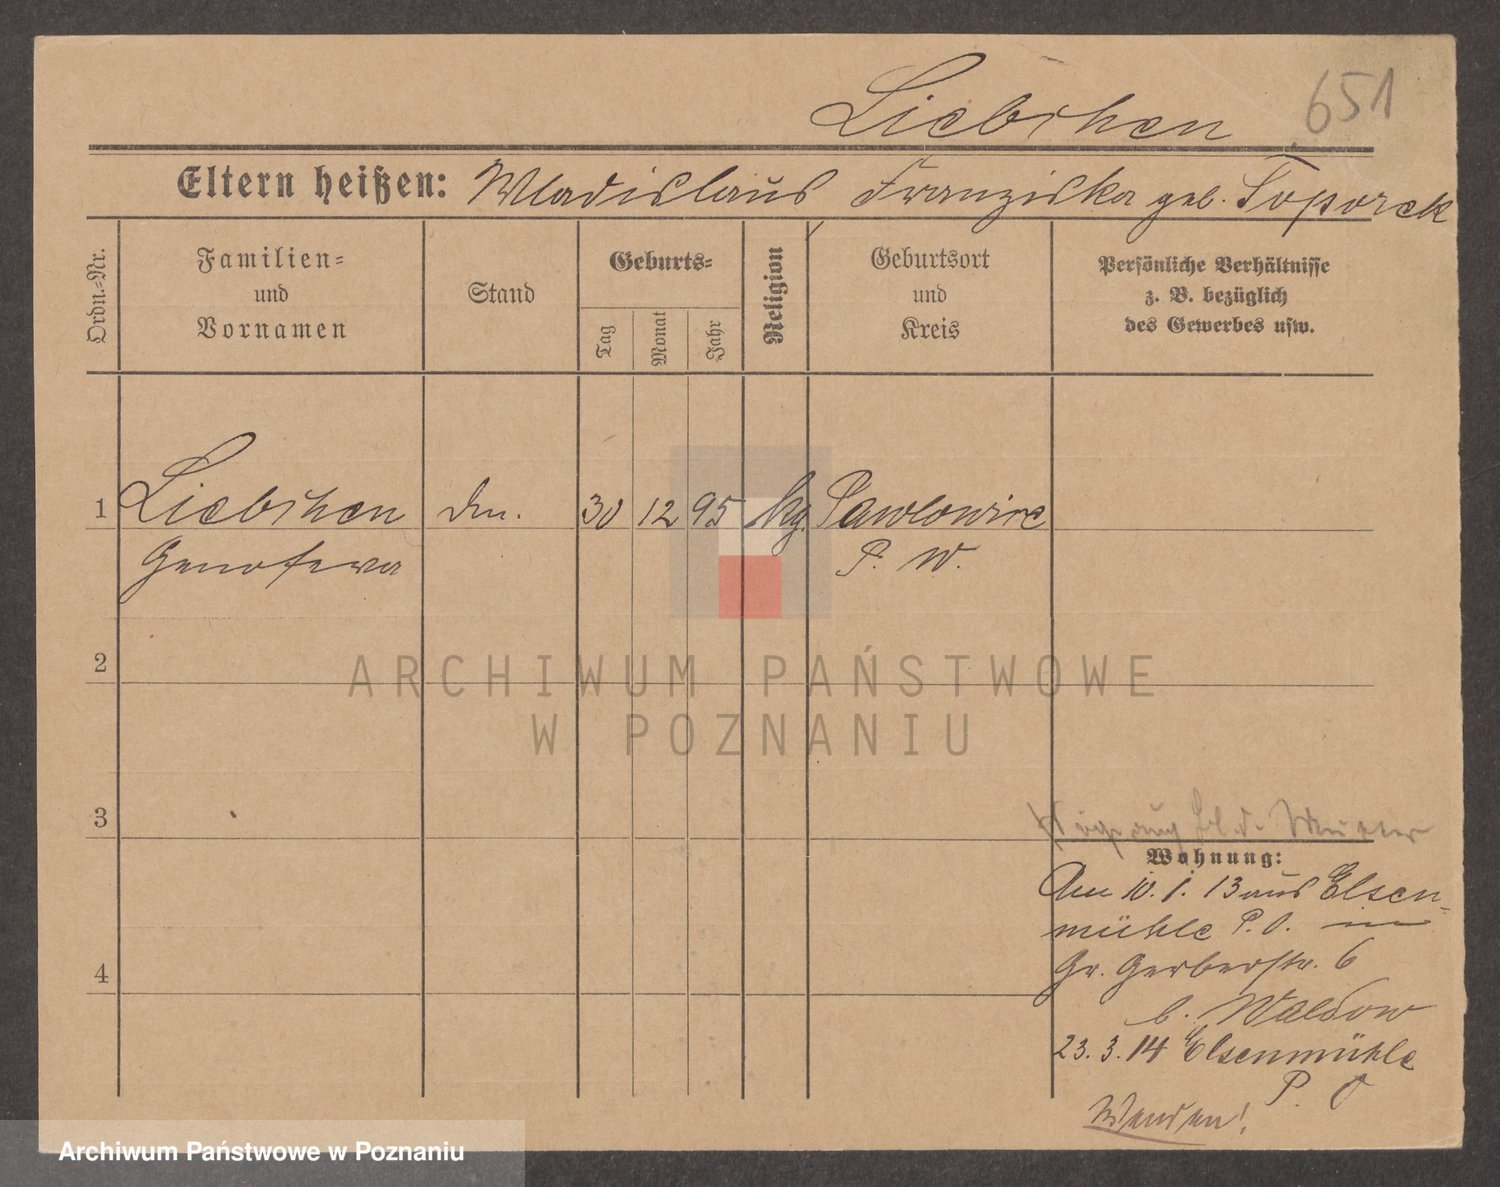 651
Liebchen
Eltern heißen: Wladislaus Franziska geb. Toporek
Ordn.-Nr.
Familien-
und
Vornamen
Stand
Geburts-
Tag
Monat
Jahr
Religion
Geburtsort
und
Kreis
Persönliche Verhältnisse
z. B. bezüglich
des Gewerbes usw.
1 Liebchen 30 12 95 Pawlowice
Genofewa P. W.
2
ARCHIWUM PAŃSTWOWE
W POZNANIU
3
Bl. d. Mutter
Wohnung:
Am 10. 1. 13 aus Elsen-
mühle P. O.
Gr. Gerberstr. 6
4
b. Waldow
23. 3. 14 Elsenmühle
P. O
Wenden!
Archiwum Państwowe w Poznaniu